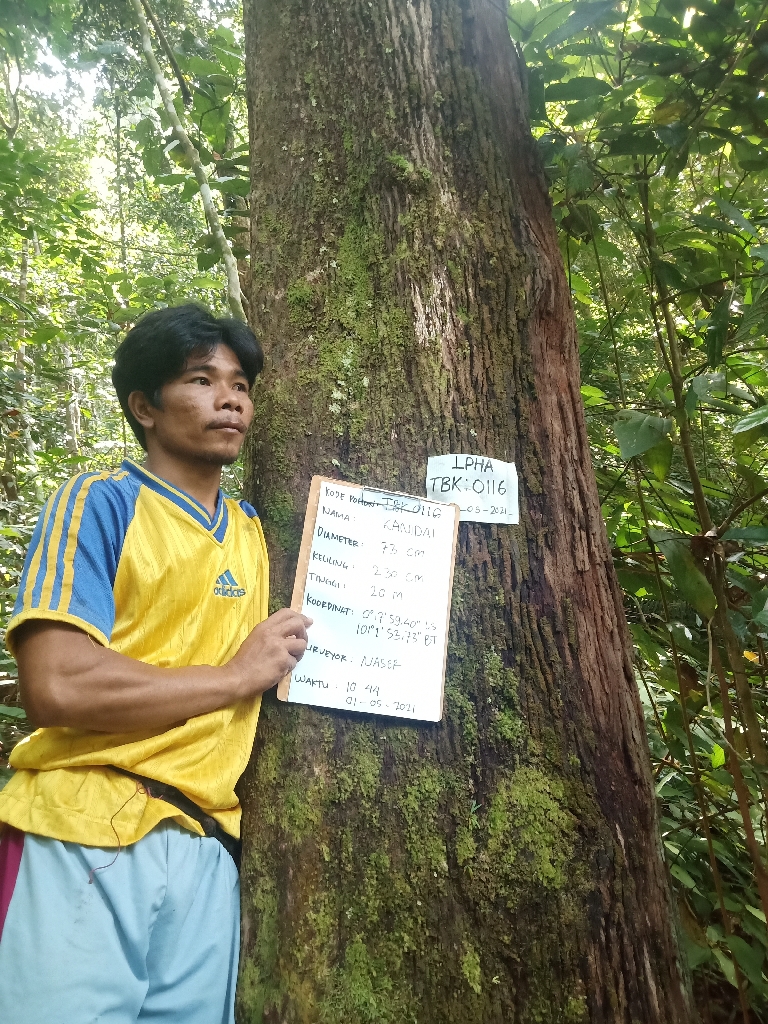 LPHA
TBK:0116
-05-2021
KODE POHON: TBK 0116
NAMA: KANDAI
DIAMETER: 73 cm
KELILING: 230 cm
TINGGI: 20 M
KOORDINAT: 0°7'59.40" LS
101°1'53.73" BT
URVEYOR: NASEF
WAKTU: 10 44
01-05-2021
adidas